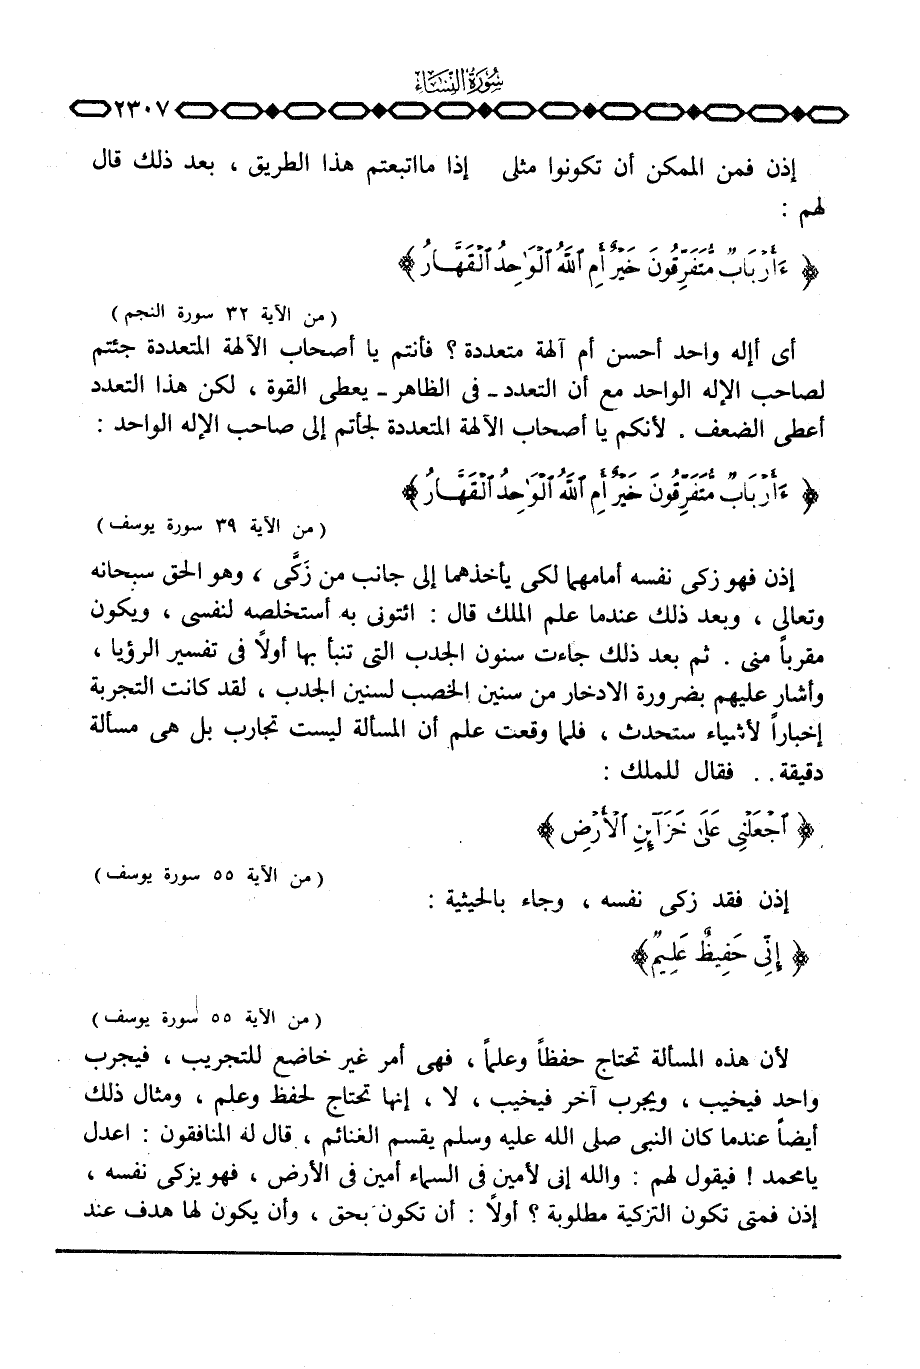 سُورَةُ النِّسَاءِ
٢٣٠٧
إذن فمن الممكن أن تكونوا مثلى إذا مااتبعتم هذا الطريق ، بعد ذلك قال
لهم :
﴿ ءَأَرْبَابٌ مُّتَفَرِّقُونَ خَيْرٌ أَمِ ٱللَّهُ ٱلْوَٰحِدُ ٱلْقَهَّارُ ﴾
( من الآية ٣٢ سورة النجم )
أى أإله واحد أحسن أم آلهة متعددة ؟ فأنتم يا أصحاب الآلهة المتعددة جئتم
لصاحب الإله الواحد مع أن التعدد ـ فى الظاهر ـ يعطى القوة ، لكن هذا التعدد
أعطى الضعف . لأنكم يا أصحاب الآلهة المتعددة لجأتم إلى صاحب الإله الواحد :
﴿ ءَأَرْبَابٌ مُّتَفَرِّقُونَ خَيْرٌ أَمِ ٱللَّهُ ٱلْوَٰحِدُ ٱلْقَهَّارُ ﴾
( من الآية ٣٩ سورة يوسف )
إذن فهو زكى نفسه أمامهما لكى يأخذهما إلى جانب من زَكَّى ، وهو الحق سبحانه
وتعالى ، وبعد ذلك عندما علم الملك قال : ائتونى به أستخلصه لنفسى ، ويكون
مقرباً منى . ثم بعد ذلك جاءت سنون الجدب التى تنبأ بها أولاً فى تفسير الرؤيا ،
وأشار عليهم بضرورة الادخار من سنين الخصب لسنين الجدب ، لقد كانت التجربة
إخباراً لأشياء ستحدث ، فلما وقعت علم أن المسألة ليست تجارب بل هى مسألة
دقيقة . . فقال للملك :
﴿ ٱجْعَلْنِى عَلَىٰ خَزَآئِنِ ٱلْأَرْضِ ﴾
( من الآية ٥٥ سورة يوسف )
إذن فقد زكى نفسه ، وجاء بالحيثية :
﴿ إِنِّى حَفِيظٌ عَلِيمٌ ﴾
( من الآية ٥٥ سورة يوسف )
لأن هذه المسألة تحتاج حفظاً وعلماً ، فهى أمر غير خاضع للتجريب ، فيجرب
واحد فيخيب ، ويجرب آخر فيخيب ، لا ، إنها تحتاج لحفظ وعلم ، ومثال ذلك
أيضاً عندما كان النبى صلى الله عليه وسلم يقسم الغنائم ، قال له المنافقون : اعدل
يامحمد ! فيقول لهم : والله إنى لأمين فى السماء أمين فى الأرض ، فهو يزكى نفسه ،
إذن فمتى تكون التزكية مطلوبة ؟ أولاً : أن تكون بحق ، وأن يكون لها هدف عند